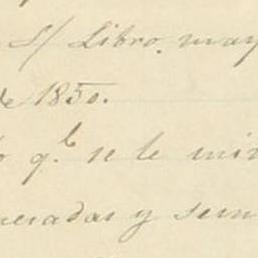 S/ Libro. may
de 1850.
q.e se le mi
neradas y sem